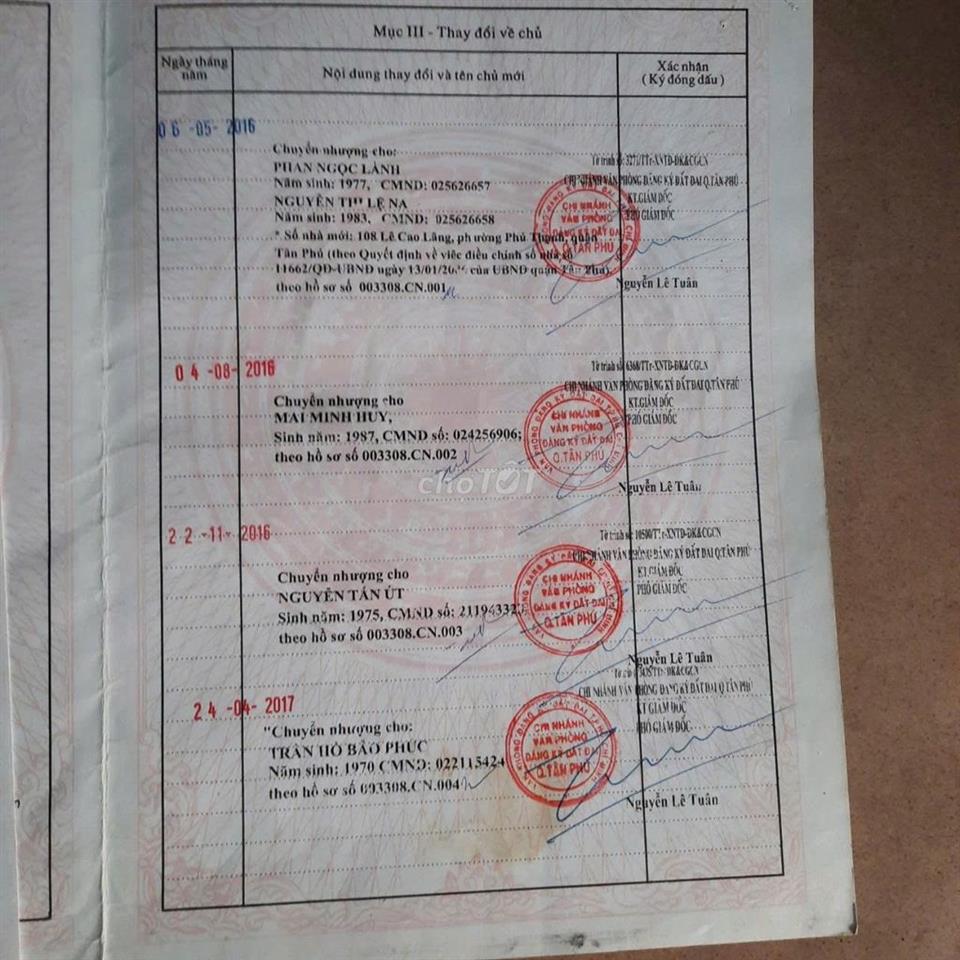 Mục III - Thay đổi về chủ
Ngày tháng năm
Nội dung thay đổi và tên chủ mới
Xác nhận
( Ký đóng dấu )
06 -05- 2016
Chuyển nhượng cho:
PHAN NGỌC LÀNH
Năm sinh: 1977, CMND: 025626657
NGUYỄN THỊ LỆ NA
Năm sinh: 1983, CMND: 025626658
* Số nhà mới: 108 Lê Cao Lãng, phường Phú Thạnh, quận
Tân Phú (theo Quyết định về việc điều chỉnh số nhà số
11662/QĐ-UBND ngày 13/01/20 của UBND quận Tân Phú)
theo hồ sơ số 003308.CN.001
Tờ trình số: 3271/TTr-XNTD-ĐK&CGCN
CHI NHÁNH VĂN PHÒNG ĐĂNG KÝ ĐẤT ĐAI Q.TÂN PHÚ
KT.GIÁM ĐỐC
PHÓ GIÁM ĐỐC
CHI NHÁNH
VĂN PHÒNG
ĐĂNG KÝ ĐẤT ĐAI
Q.TÂN PHÚ
Nguyễn Lê Tuân
04 -08- 2016
Chuyển nhượng cho
MAI MINH HUY,
Sinh năm: 1987, CMND số: 024256906;
theo hồ sơ số 003308.CN.002
Tờ trình số: 6360/TTr-XNTD-ĐK&CGCN
CHI NHÁNH VĂN PHÒNG ĐĂNG KÝ ĐẤT ĐAI Q.TÂN PHÚ
KT.GIÁM ĐỐC
PHÓ GIÁM ĐỐC
CHI NHÁNH
VĂN PHÒNG
ĐĂNG KÝ ĐẤT ĐAI
Q.TÂN PHÚ
Nguyễn Lê Tuân
choTỐT
22 -11- 2016
Chuyển nhượng cho
NGUYỄN TẤN ÚT
Sinh năm: 1975, CMND số: 211943323
theo hồ sơ số 003308.CN.003
Tờ trình số: 10500/TTr-XNTD-ĐK&CGCN
CHI NHÁNH VĂN PHÒNG ĐĂNG KÝ ĐẤT ĐAI Q.TÂN PHÚ
KT.GIÁM ĐỐC
PHÓ GIÁM ĐỐC
CHI NHÁNH
VĂN PHÒNG
ĐĂNG KÝ ĐẤT ĐAI
Q.TÂN PHÚ
Nguyễn Lê Tuân
24 -04- 2017
"Chuyển nhượng cho:
TRẦN HỒ BẢO PHÚC
Năm sinh: 1970 CMND: 022115424
theo hồ sơ số 003308.CN.004
CHI NHÁNH VĂN PHÒNG ĐĂNG KÝ ĐẤT ĐAI Q.TÂN PHÚ
KT GIÁM ĐỐC
PHÓ GIÁM ĐỐC
CHI NHÁNH
VĂN PHÒNG
ĐĂNG KÝ ĐẤT ĐAI
Q.TÂN PHÚ
Nguyễn Lê Tuân